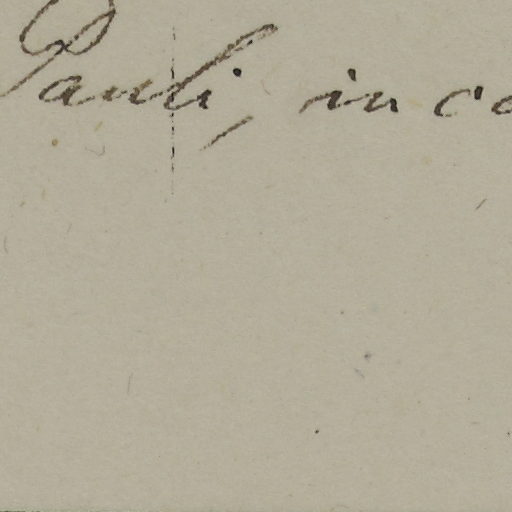 Pauli, in co